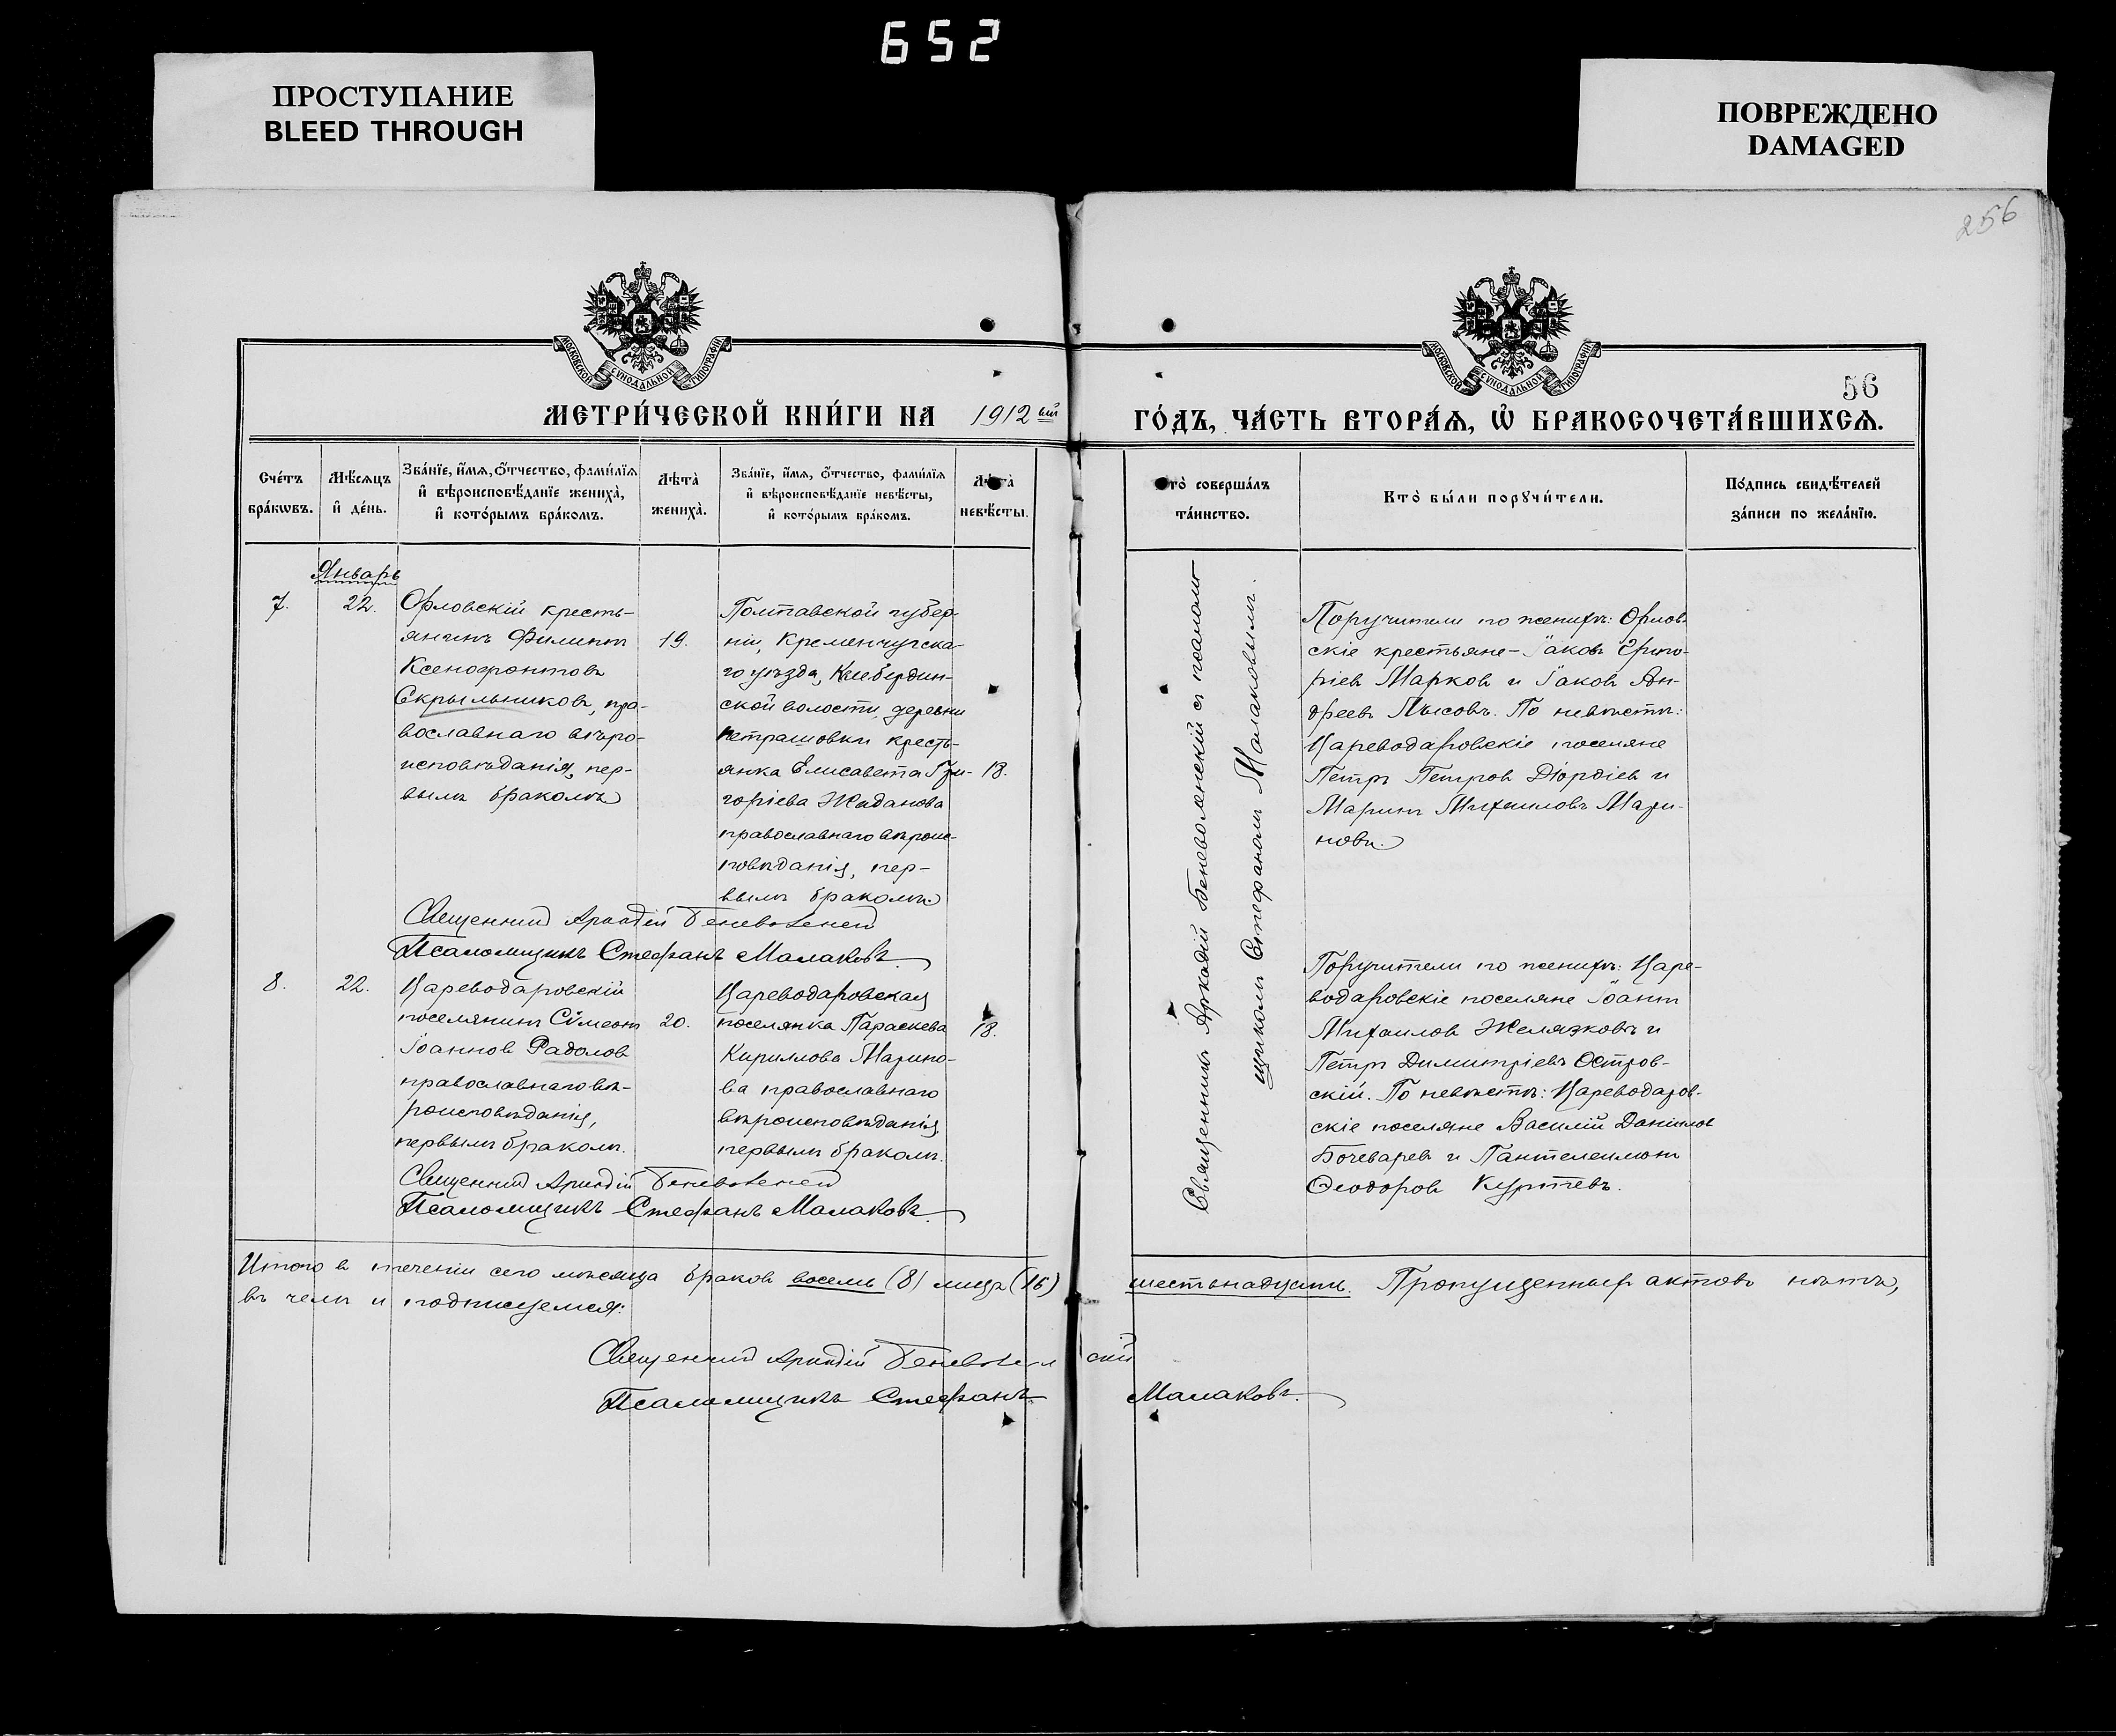 652
ПРОСТУПАНИЕ
BLEED THROUGH
ПОВРЕЖДЕНО
DAMAGED
256
МОСКОВСКОЙ СѴНОДАЛЬНОЙ ТИПОГРАФІИ
МОСКОВСКОЙ СѴНОДАЛЬНОЙ ТИПОГРАФІИ
56
МЕТРИ́ЧЕСКОЙ КНИ́ГИ НА 1912 ый
ГО́ДЪ, ЧА́СТЬ ВТОРА́Ѧ, Ѡ҆ БРАКОСОЧЕТА́ВШИХСѦ.
Сче́тъ
бра́кѡвъ.
Мѣ́сѧцъ
и҆ де́нь.
Зва́нїе, и҆́мѧ, ѻ҆́тчество, фами́лїѧ
и҆ вѣроисповѣ́данїе жениха̀,
и҆ кото́рымъ бра́комъ.
Лѣта̀
жениха̀.
Зва́нїе, и҆́мѧ, ѻ҆́тчество, фами́лїѧ
и҆ вѣроисповѣ́данїе невѣ́сты,
и҆ кото́рымъ бра́комъ.
Лѣта̀
невѣ́сты.
Кто̀ соверша́лъ
та́инство.
Кто̀ бы́ли порꙋчи́тели.
По́дпись свидѣ́телей
за́писи по жела́нїю.
Январь
7.
22.
Орловскій кресть-
янинъ Филиппъ
Ксенофонтовъ
Скрыльниковъ, пра-
вославнаго вѣро-
исповѣданія, пер-
вымъ бракомъ
19.
Полтавской губер-
ніи, Кременчугска-
го уѣзда, Келебердин-
ской волости, деревни
Петрашовки кресть-
янка Елисавета Гри-
горіева Жаданова
православнаго вѣроис-
повѣданія, пер-
вымъ бракомъ
18.
Священникъ Аркадій Беневоленскій
Псаломщикъ Стефанъ Малаковъ.
Священникъ Аркадій Беневоленскій съ псалом-
щикомъ Стефаномъ Малаковымъ.
Поручители по женихѣ: Орлов-
скіе крестьяне – Іаковъ Григо-
ріевъ Марковъ и Іаковъ Ан-
дреевъ Лысовъ. По невѣстѣ:
Цареводаровскіе поселяне
Петръ Петровъ Діордіевъ и
Маринъ Михаиловъ Мари-
новъ.
8.
22.
Цареводаровскій
поселянинъ Сѵмеонъ
Іоанновъ Радоловъ
православнаго вѣ-
роисповѣданія,
первымъ бракомъ.
20.
Цареводаровская
поселянка Параскева
Кириллова Марино-
ва православнаго
вѣроисповѣданія
первымъ бракомъ.
18.
Священникъ Аркадій Беневоленскій
Псаломщикъ Стефанъ Малаковъ.
Поручители по женихѣ: Царе-
водаровскіе поселяне Іоаннъ
Михаиловъ Желязковъ и
Петръ Димитріевъ Остров-
скій. По невѣстѣ: Цареводаров-
скіе поселяне Василій Даніиловъ
Бочеваревъ и Пантелеимонъ
Ѳеодоровъ Куртевъ.
Итого въ теченіи сего мѣсяца браковъ восемь (8) лицъ (16) шестьнадцать. Пропущенныхъ актовъ нѣтъ,
въ чемъ и подписуемся:
Священникъ Аркадій Беневоленскій
Псаломщикъ Стефанъ Малаковъ.